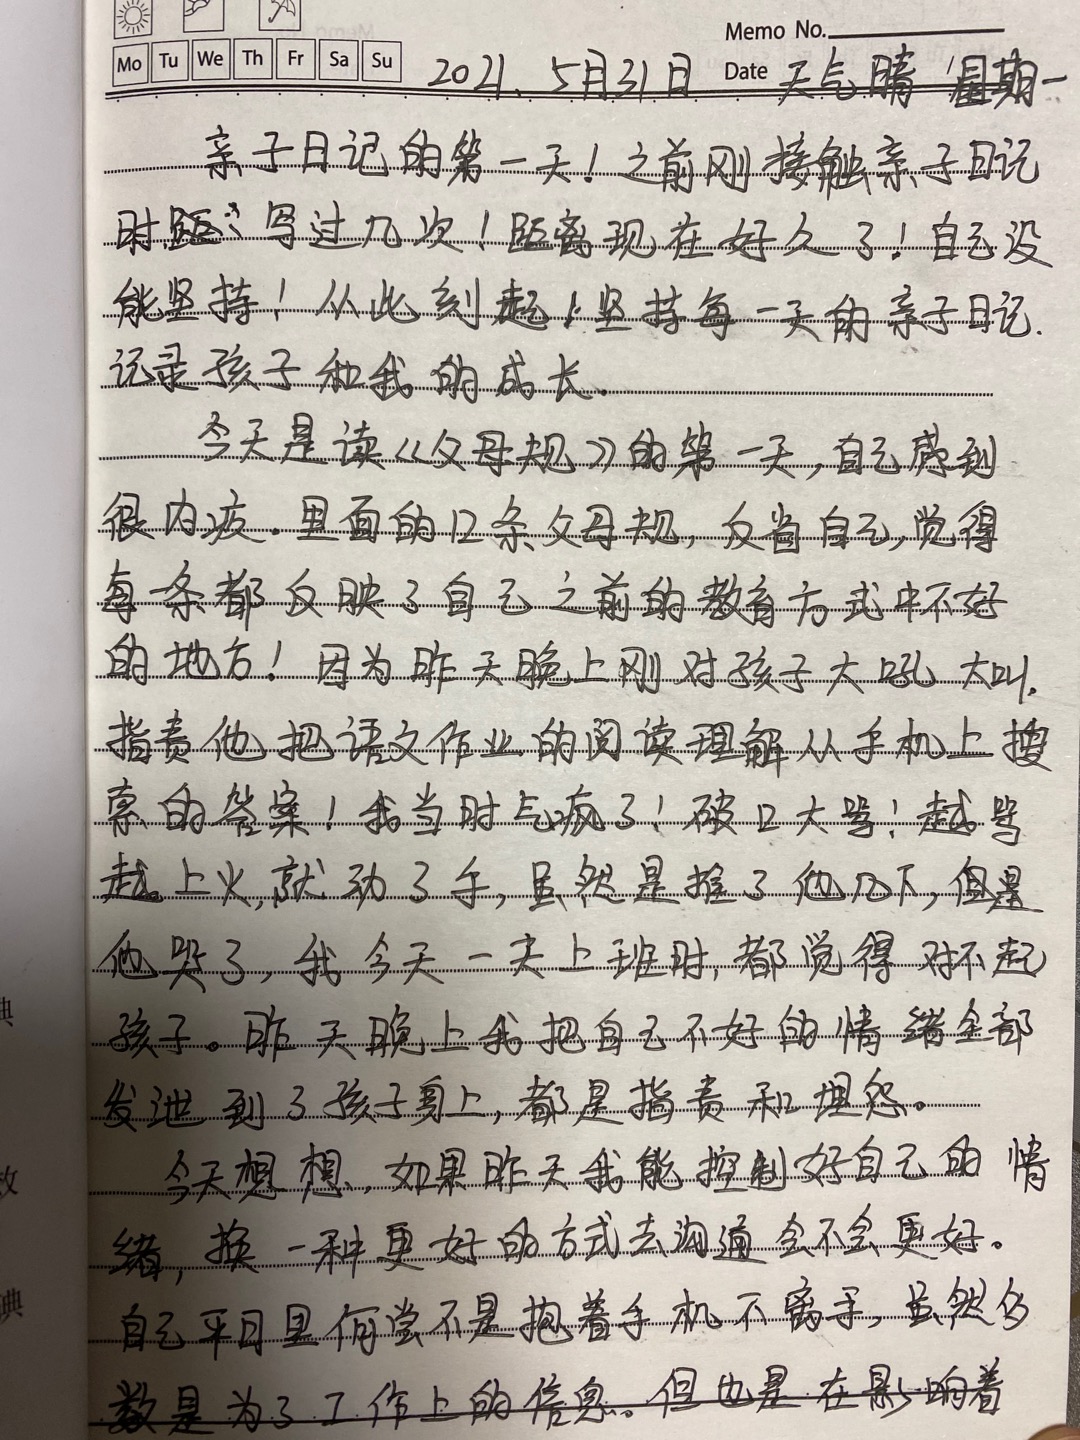 Memo No.
Mo Tu We Th Fr Sa Su
2021. 5月31日 Date 天气晴 星期一
亲子日记的第一天！之前刚接触亲子日记
时距写过几次！距离现在好久了！自己没
能坚持！从此刻起！坚持每一天的亲子日记.
记录孩子和我的成长.
今天是读《父母规》的第一天,自己感到
很内疚.里面的12条父母规,反省自己,觉得
每一条都反映了自己之前的教育方式中不好
的地方！因为昨天晚上刚对孩子大吼大叫.
指责他把语文作业的阅读理解从手机上搜
索的答案！我当时气疯了！破口大骂！越骂
越上火,就动了手,虽然是推了他几下,但是
他哭了,我今天一天上班时,都觉得对不起
孩子。昨天晚上我把自己不好的情绪全部
发泄到了孩子身上,都是指责和埋怨。
今天想想,如果昨天我能控制好自己的情
绪,换一种更好的方式去沟通会不会更好。
自己平日里何尝不是抱着手机不离手,虽然多
数是为了工作上的信息。但也是在影响着
典
教
典